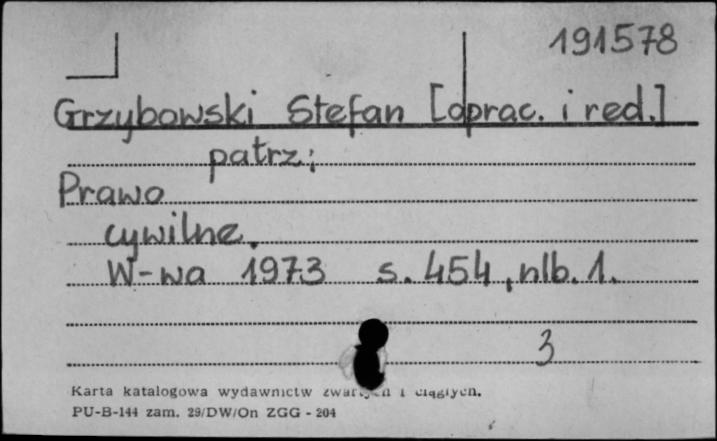 191578
Grzybowski Stefan [oprac. i red.]
patrz:
Prawo
cywilne.
W-wa 1973 s. 454, nlb. 1.
3
Karta katalogowa wydawnictw zwartych i ciągłych.
PU-B-144 zam. 29/DW/On ZGG - 204